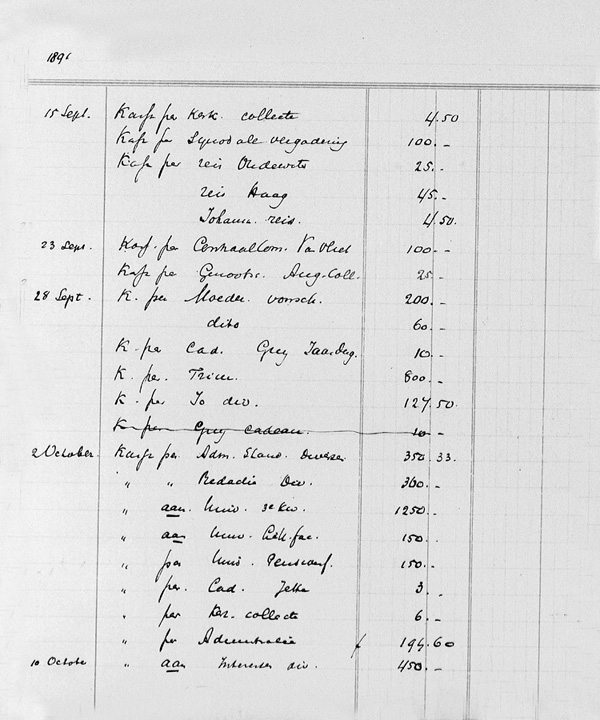 1896
15 Sept. Kas per Kerk. collecte 4.50
Kas per Synodale vergadering 100.-
Kas per reis Oudewater 25.-
reis Haag 45.-
Johann. reis. 4.50.
23 Sept. Kas. per Centraal Com. Van Vliet 100.-
Kas per Genootsc. Aug. Coll. 25.-
28 Sept. K. per Moeder. voorsch. 200.-
dito 60.-
K. per Cad. Guy Jaardag. 10.-
K. per. Trim. 800.-
K. per Jo div. 127.50.
K. per Guy cadeau. 10.-
2 October. Kas per. Adm. Stand. Diverse 350.33.
" " Redactie Div. 360.-
" aan. Univ. 3e Kw. 1250.-
" aan Univ. fac. 150.-
" per Univ. Pensionf. 150.-
" per. Cad. Jetta 3.-
" per Ker. collecte 6.-
" per Administratie f 194.60
10 Octobe " aan Interesten div. 450.-